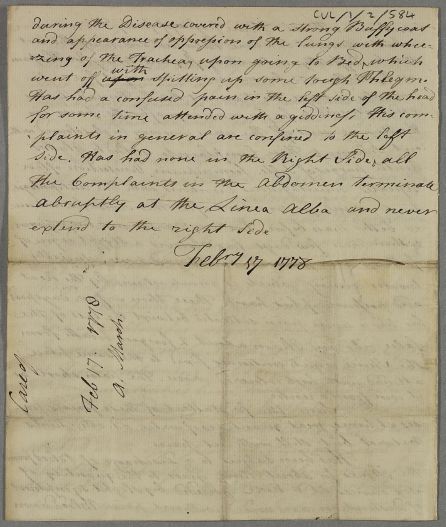 CUL/1/2/584
during the Disease covered with a strong Buffycoat
and appearance of oppression of the lungs with whee-
zing of the Trachea, upon going to Bed, which
went off with spitting up some tough Phlegm.
Has had a confused pain in the left side of the head
for some time attended with a giddiness His com-
plaints in general are confined to the left
side. Has had none in the Right Side, all
the Complaints in the Abdomen terminate
abruptly at the Linea Alba and never
extend to the right side
Febry 17 1778
Case of
Feb 17. 1778
A. March.